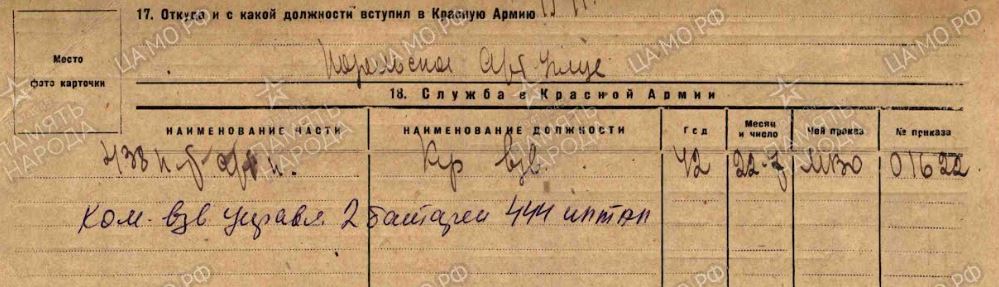 17. Откуда и с какой должности вступил в Красную Армию
Место
фото карточки
арт училище
18. Служба в Красной Армии
НАИМЕНОВАНИЕ ЧАСТИ НАИМЕНОВАНИЕ ДОЛЖНОСТИ Год Месяц и число Чей приказ № приказа
438 Кр взв. 42 22-7 МВО 01622
Ком. взв управл 2 батареи 444 иптап
ЦАМО.РФ
ПАМЯТЬ НАРОДА